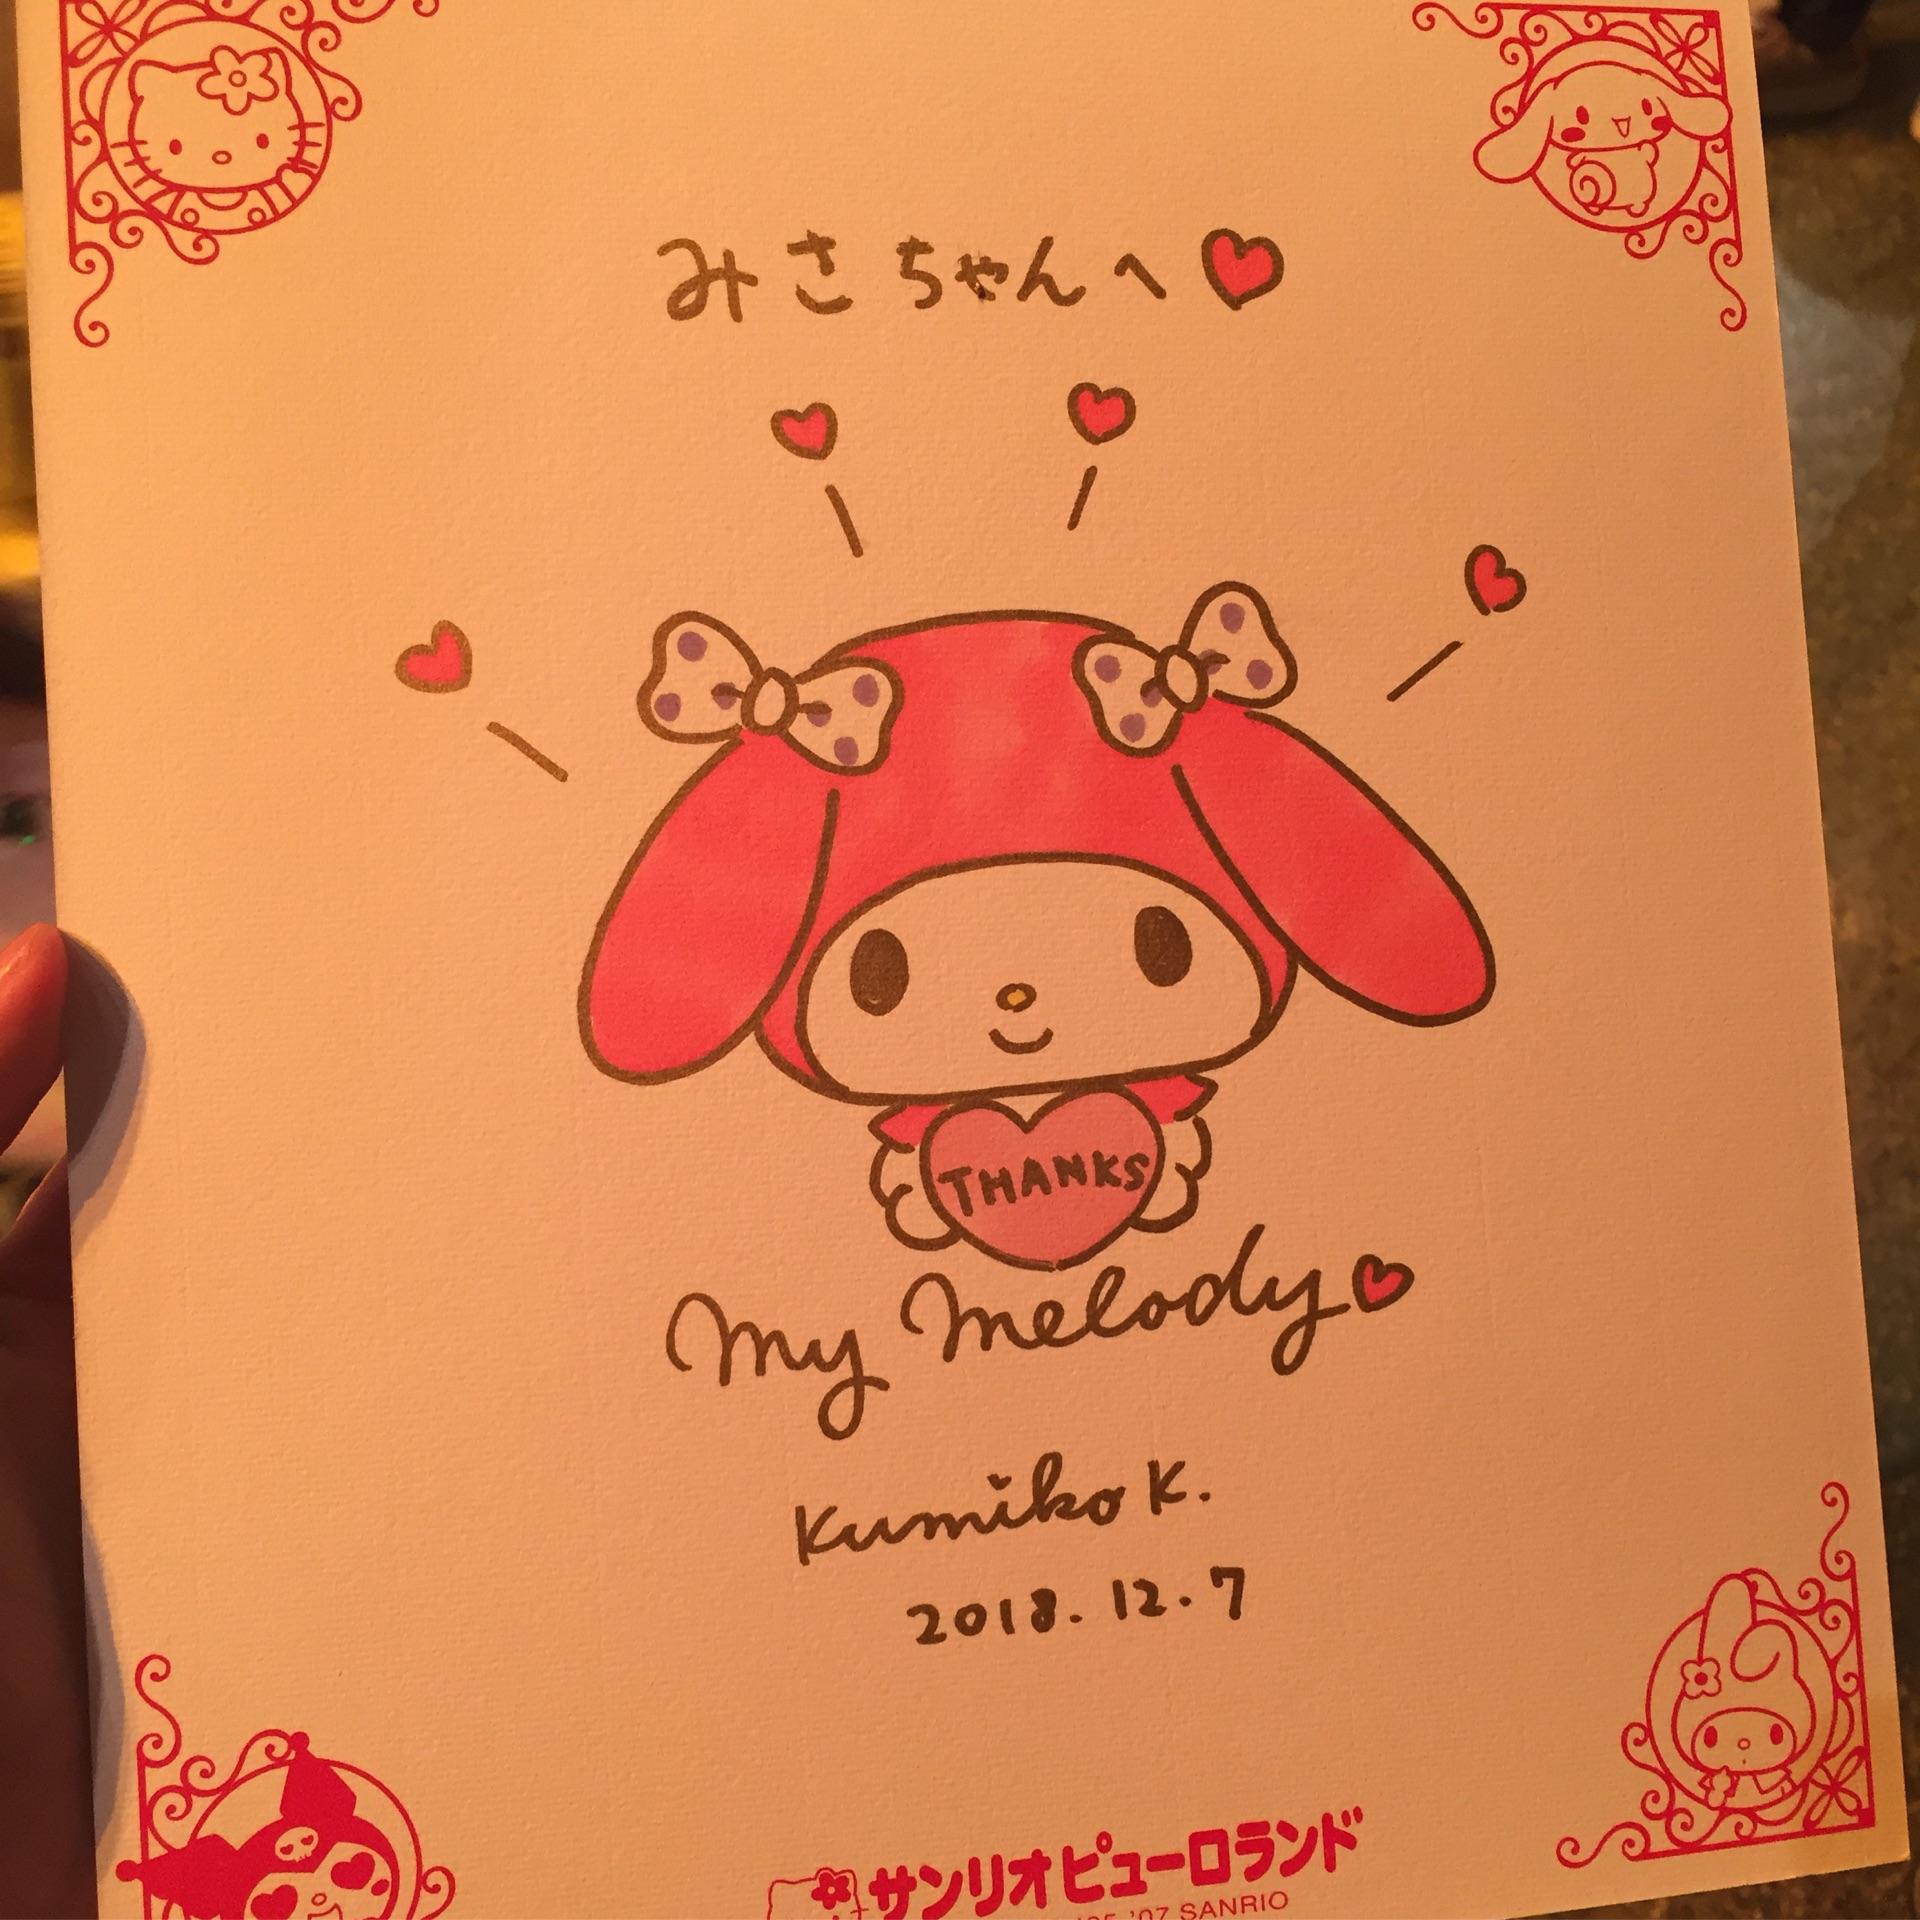 みさちゃんへ
THANKS
My Melody
Kumiko K.
2018. 12. 7
サンリオピューロランド
'07 SANRIO